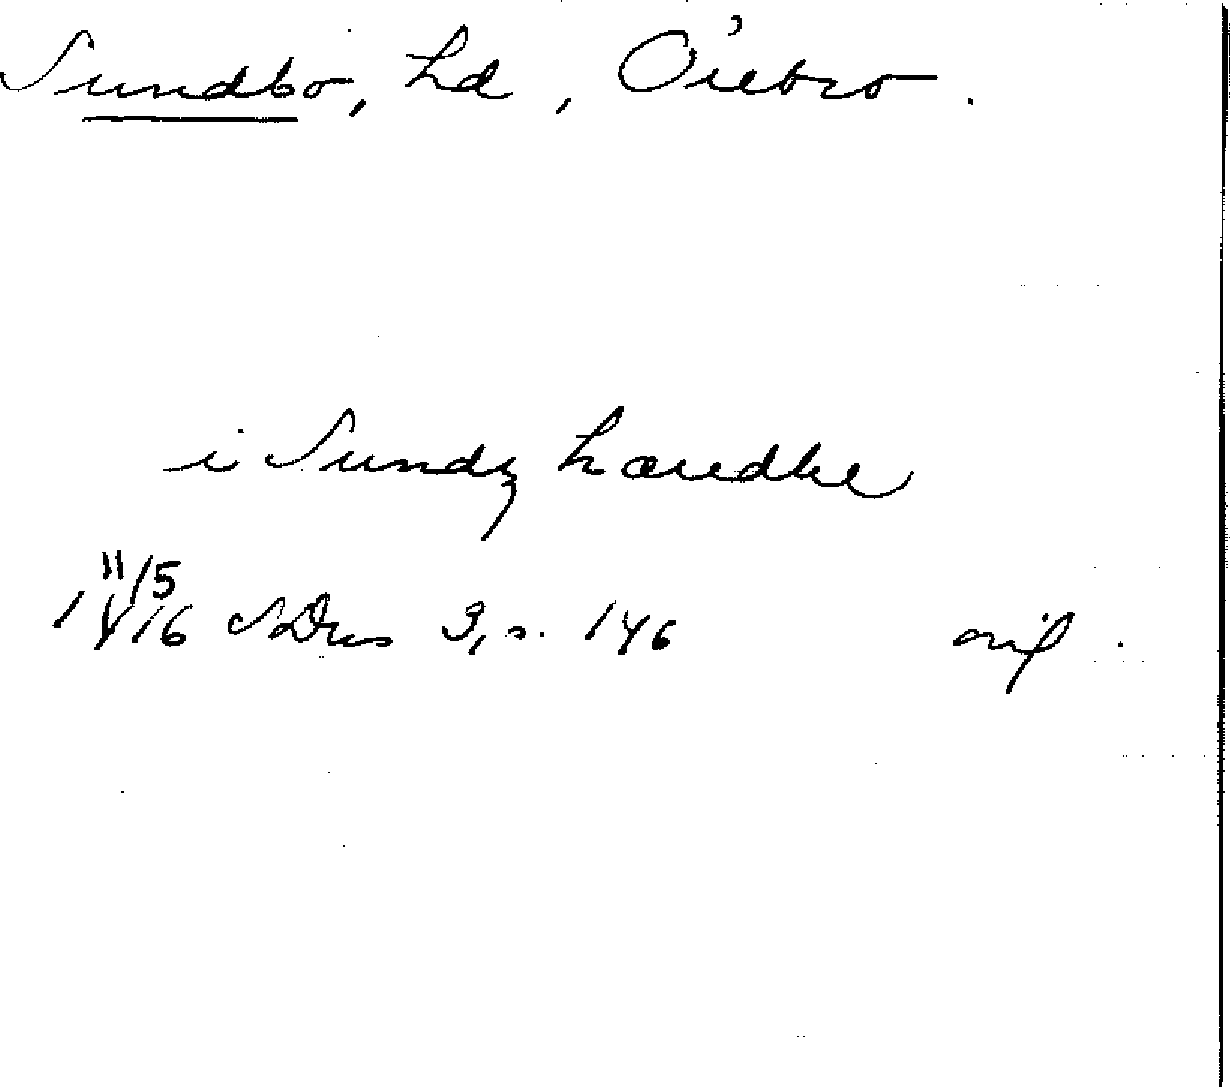 Sundbo, hd, Örebro.
i Sundz hæredhe
11/5
1416 SDns 3, s. 146 orig.